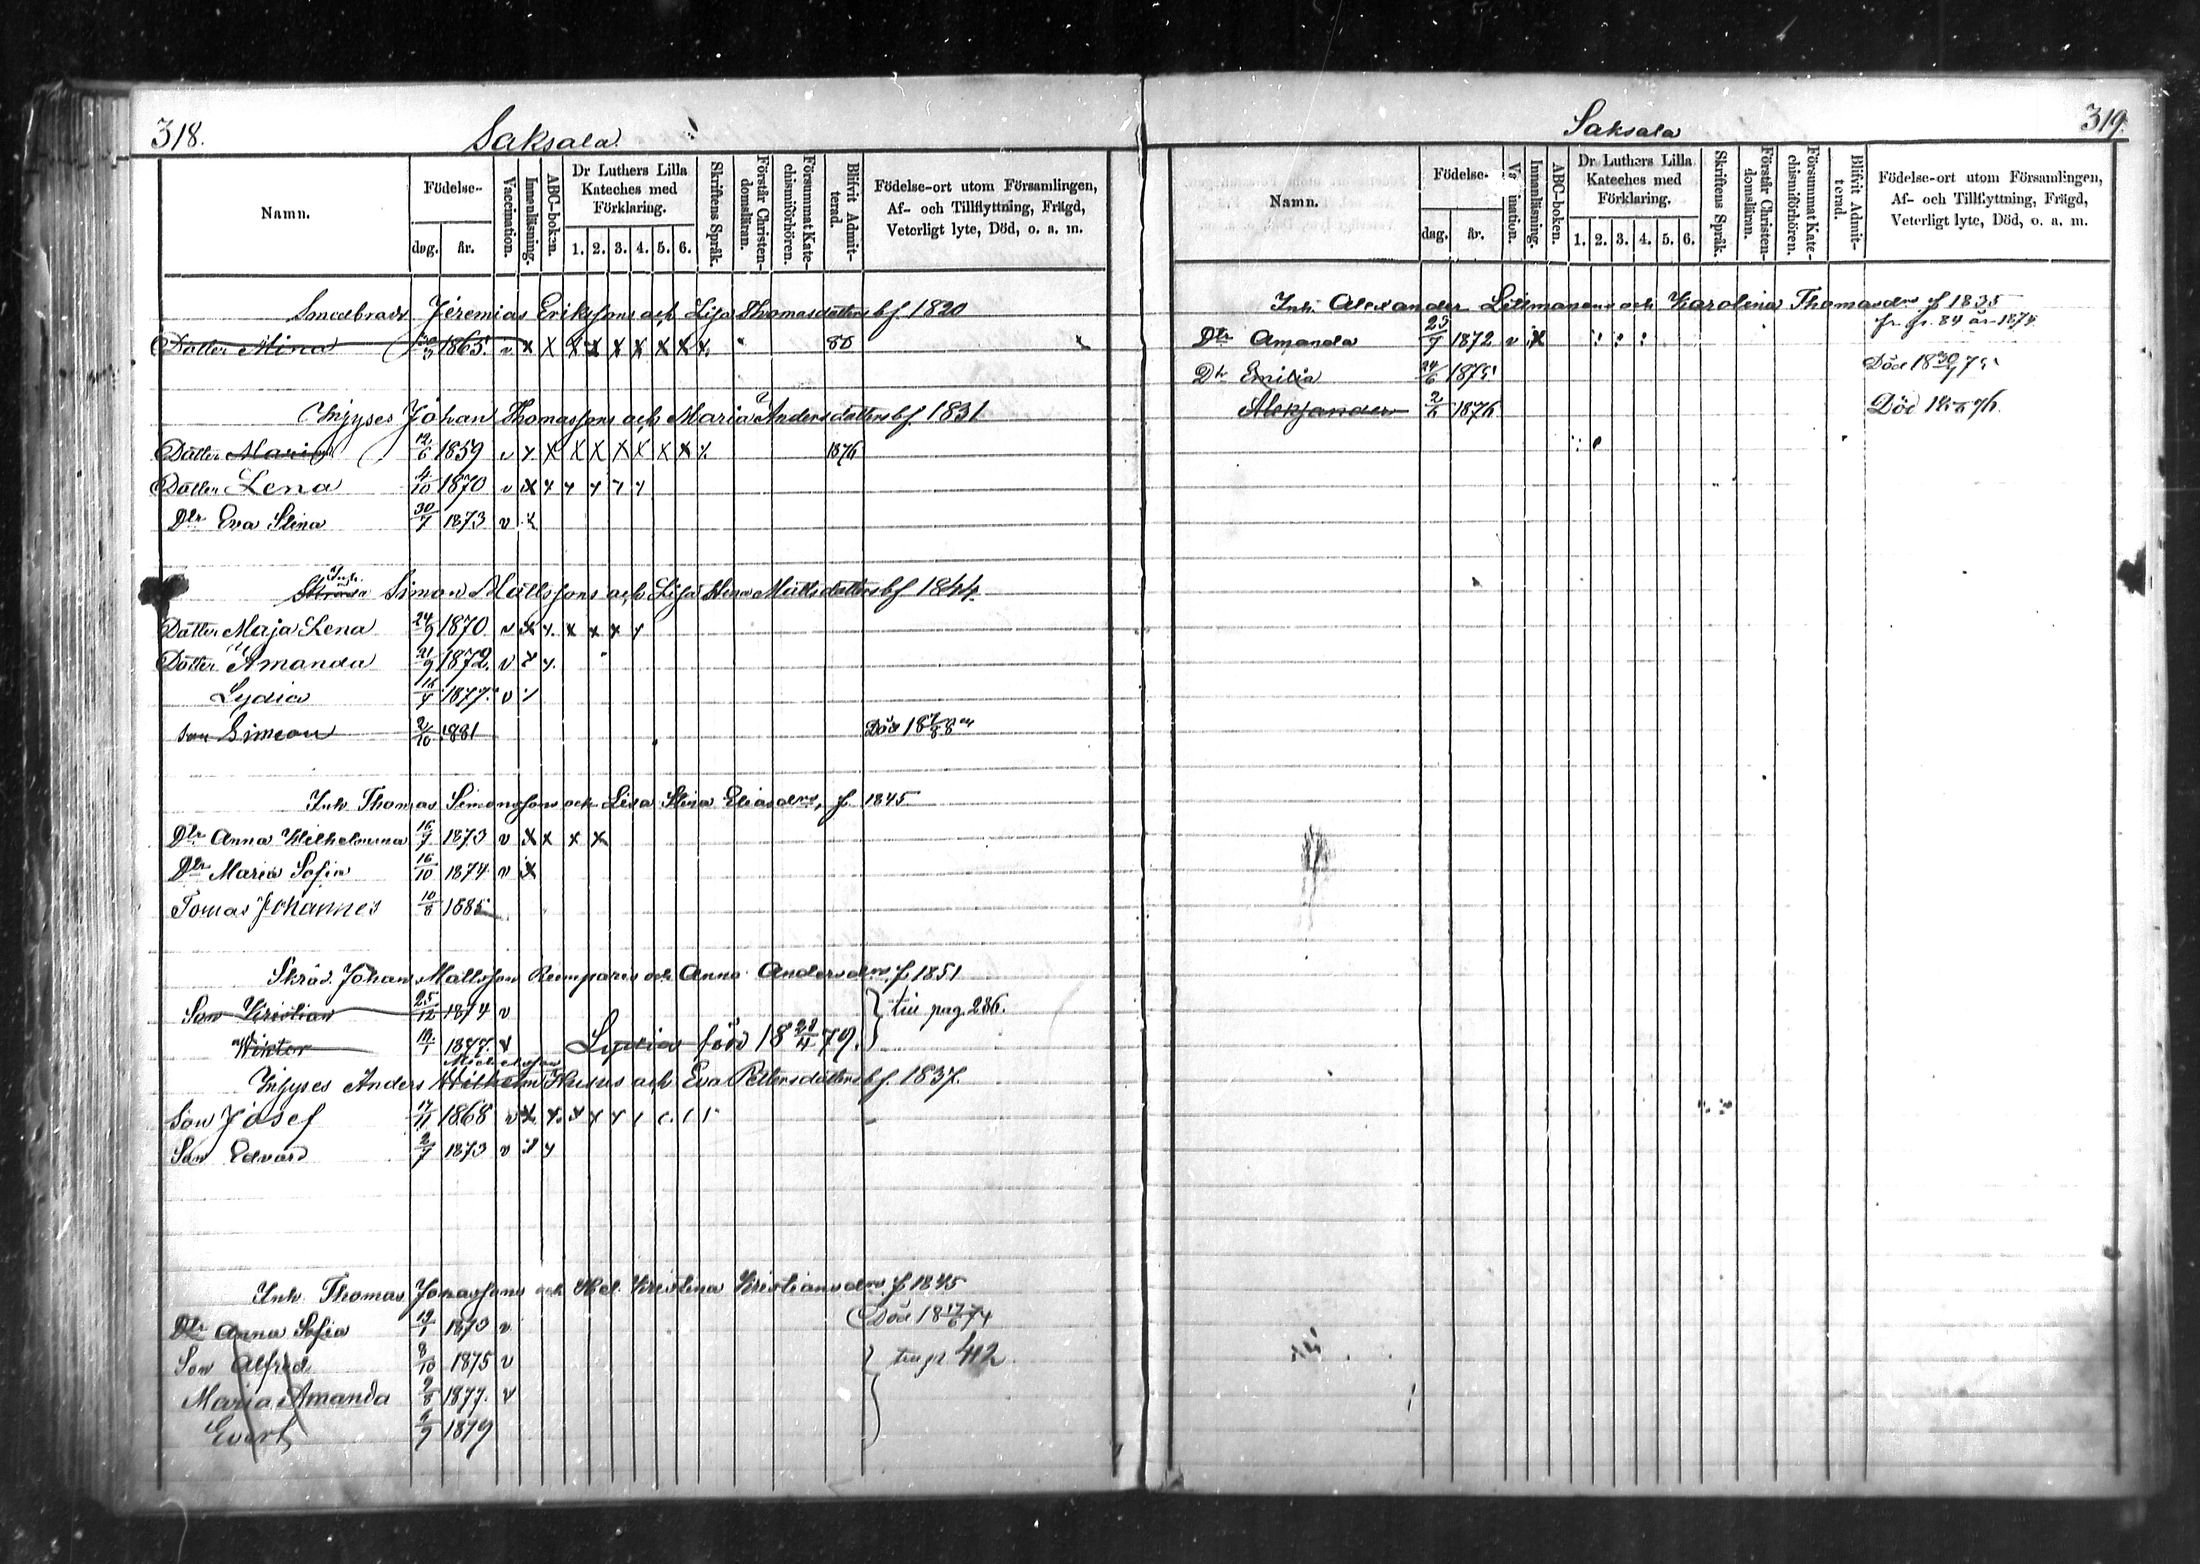 318.
Saksala
Namn.
Födelse-
dag.
år.
Vaccination.
Innanläsning.
ABC-boken.
Dr Luthers Lilla Kateches med Förklaring.
1. 2. 3. 4. 5. 6.
Skriftens Språk.
Förstår Christen-domsläran.
Försummat Kate-chismiförhören.
Blifvit Admit-terad.
Födelse-ort utom Församlingen,
Af- och Tillflyttning, Frägd,
Veterligt lyte, Död, o. a. m.
Jeremias Erikssons och Lisa Thomasdotters bf. 1820
Dotter Mina 1865. v x X X X X X X X X 80
Inhyses Johan Thomassons och Maria Andersdotters bf. 1831
Dotter Maria 12/6 1859 v X X X X X X X X 1876
Dotter Lena 4/10 1870 v X
Dtr Eva Stina 30/7 1873 v
Inh. Simon Mattssons och Lisa Stina Mattsdotters bf 1844.
Dotter Maja Lena 24/9 1870 v x
Dotter Amanda 21/9 1872. v
Lydia 1877. v
son Simeon 2/10 1881 Död
Inh Thomas Simonssons och Lisa Stina Eliasdrs, f. 1845
Dtr Anna Wilhelmina 1873 v X x x X
Dtr Maria Sofia 16/10 1874 v X
Tomas Johannes 10/8 1885
Skräd. Johan Mattsson och Anna Andersdrs f. 1851
Son Kristian 25/12 1874 v } till pag. 286.
Wiktor 1877. v Lydia föd 18 28/4 79.
Michelsson
Inhyses Anders Wilhelm och Eva Pettersdotters bf. 1837.
Son Josef 17/11 1868 v
Son Edvard 2/7 1873 v
Inh Thomas Jonassons och Hel. Kristina Kristiansdrs f. 1845
Dtr Anna Sofia 1873 v Död 18 17/6 74
Son Alfred 8/10 1875 v } till p. 412
Maria Amanda 9/8 1877. v
Evert 6/9 1879
Saksala
319.
Namn.
Födelse-
dag.
år.
Vaccination.
Innanläsning.
ABC-boken.
Dr Luthers Lilla Kateches med Förklaring.
1. 2. 3. 4. 5. 6.
Skriftens Språk.
Förstår Christen-domsläran.
Försummat Kate-chismiförhören.
Blifvit Admit-terad.
Födelse-ort utom Församlingen,
Af- och Tillflyttning, Frägd,
Veterligt lyte, Död, o. a. m.
Inh. Alexander Litmanens och Karolina Thomasdrs f. 1835
84 år 1874
Dtr Amanda 1872 v X
Dtr Emilia 24/6 1875 Död
Aleksander 2/6 1876 Död